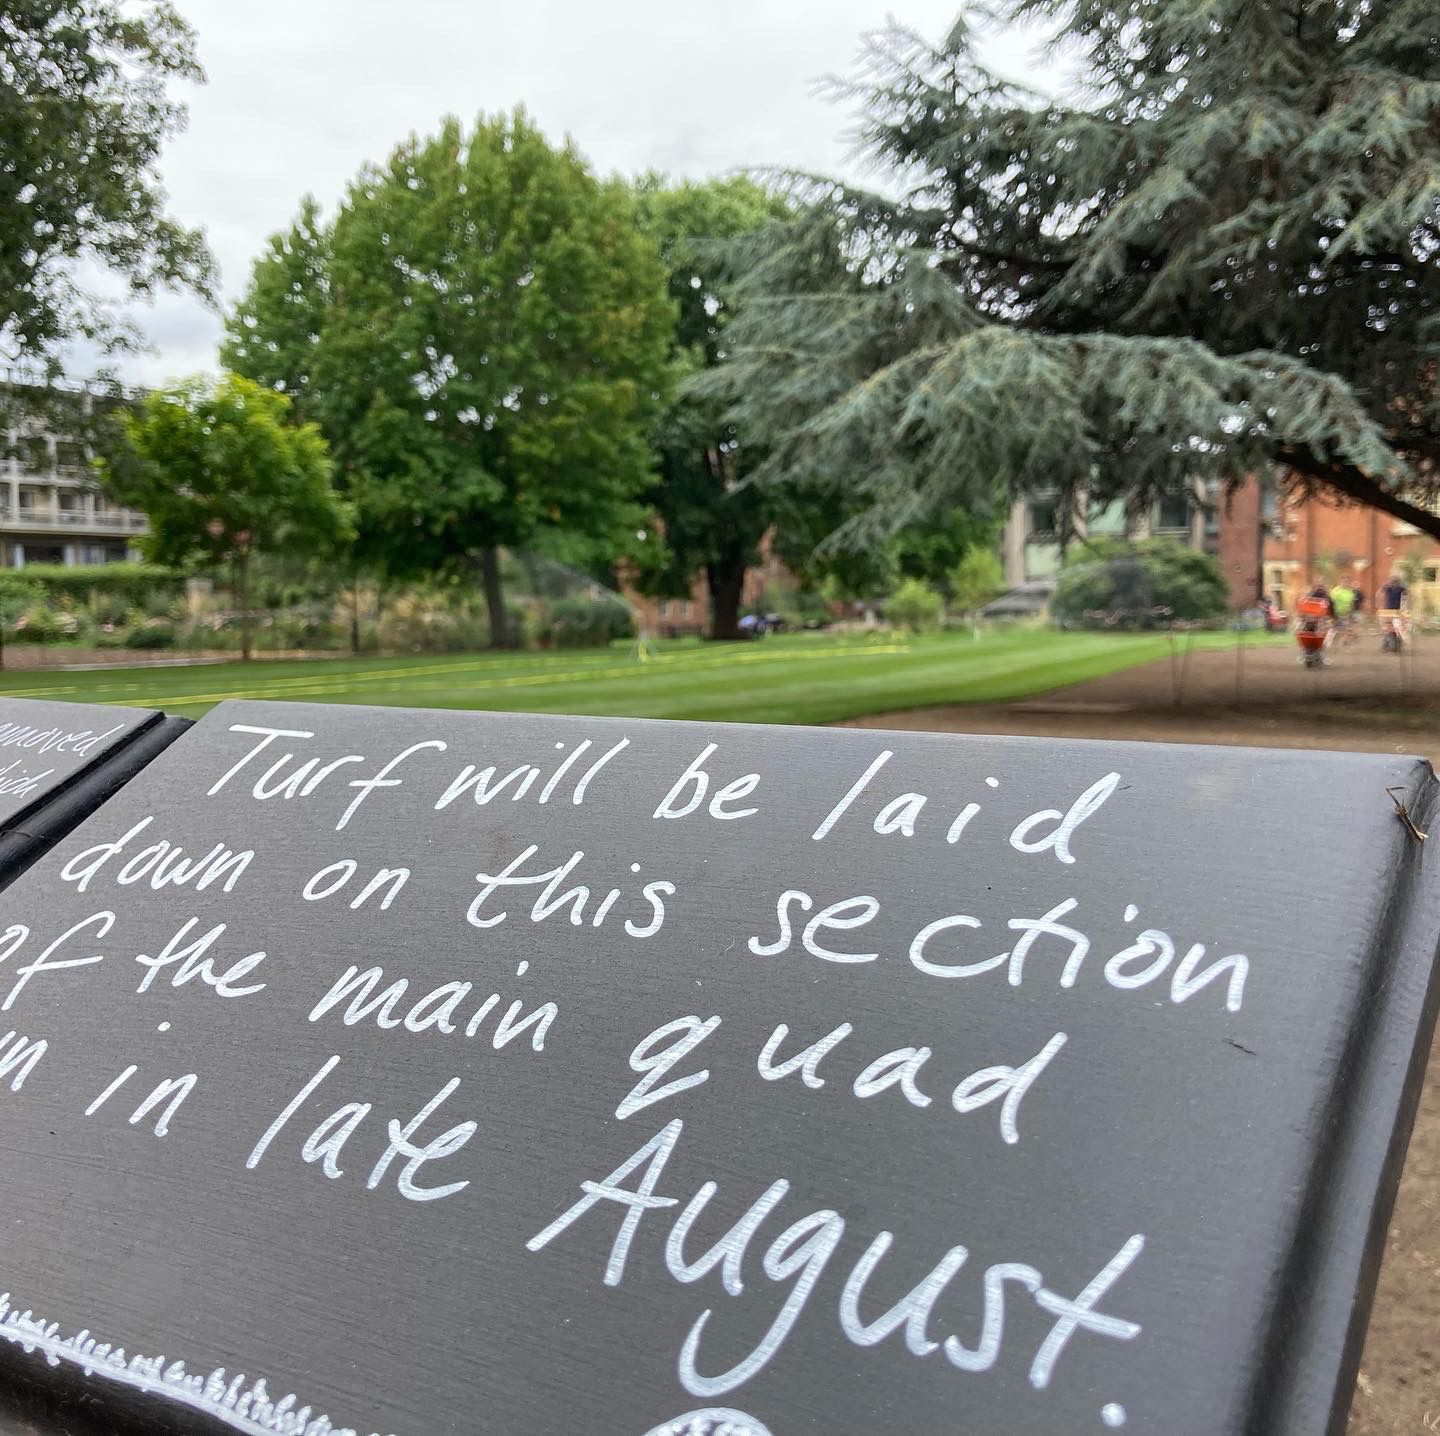 Turf will be laid
down on this section
of the main quad
in late August.